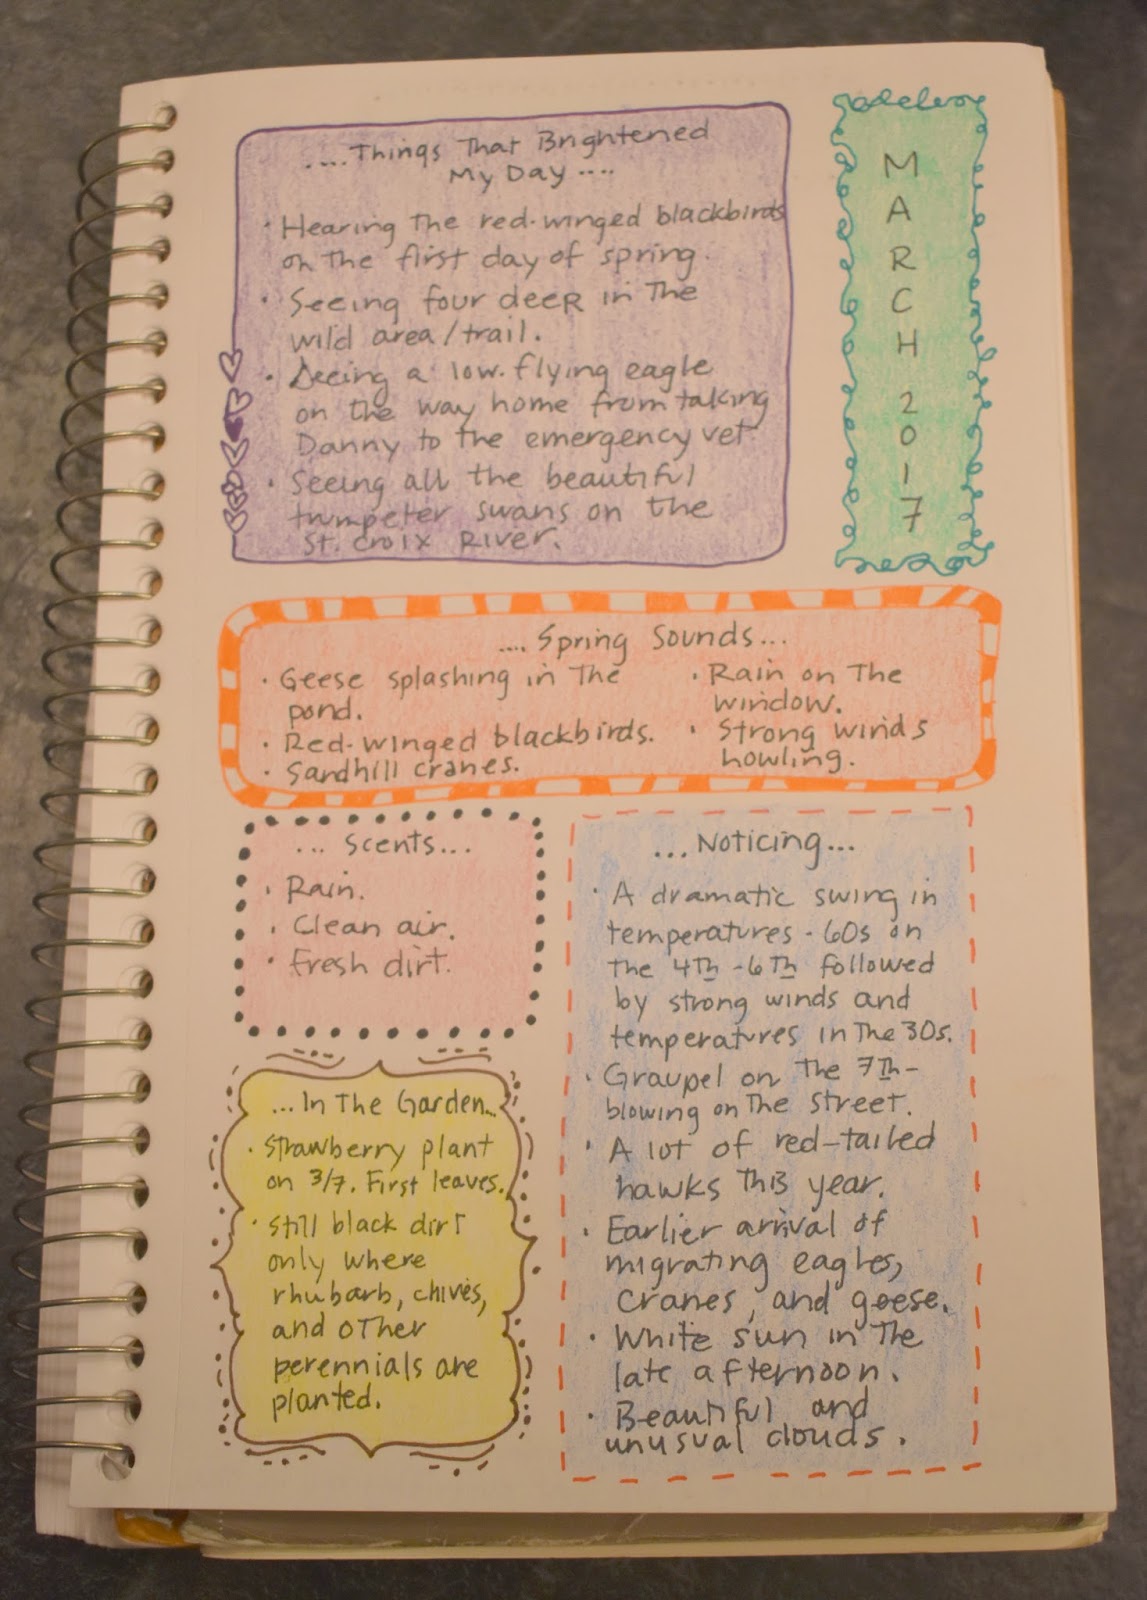 ....Things That Brightened
My Day....
• Hearing the red-winged blackbirds
on the first day of spring.
• Seeing four deer in the
wild area/trail.
• Seeing a low-flying eagle
on the way home from taking
Danny to the emergency vet.
• Seeing all the beautiful
trumpeter swans on the
St. Croix River.
MARCH 2017
....Spring Sounds...
• Geese splashing in the
pond.
• Red-winged blackbirds.
• Sandhill cranes.
• Rain on the
window.
• Strong winds
howling.
... Scents...
• Rain.
• Clean air.
• Fresh dirt.
...In the Garden...
• Strawberry plant
on 3/7. First leaves.
• Still black dirt
only where
rhubarb, chives,
and other
perennials are
planted.
...Noticing...
• A dramatic swing in
temperatures - 60s on
the 4th - 6th followed
by strong winds and
temperatures in the 30s.
• Graupel on the 7th -
blowing on the street.
• A lot of red-tailed
hawks this year.
• Earlier arrival of
migrating eagles,
cranes, and geese.
• White sun in the
late afternoon.
• Beautiful and
unusual clouds.